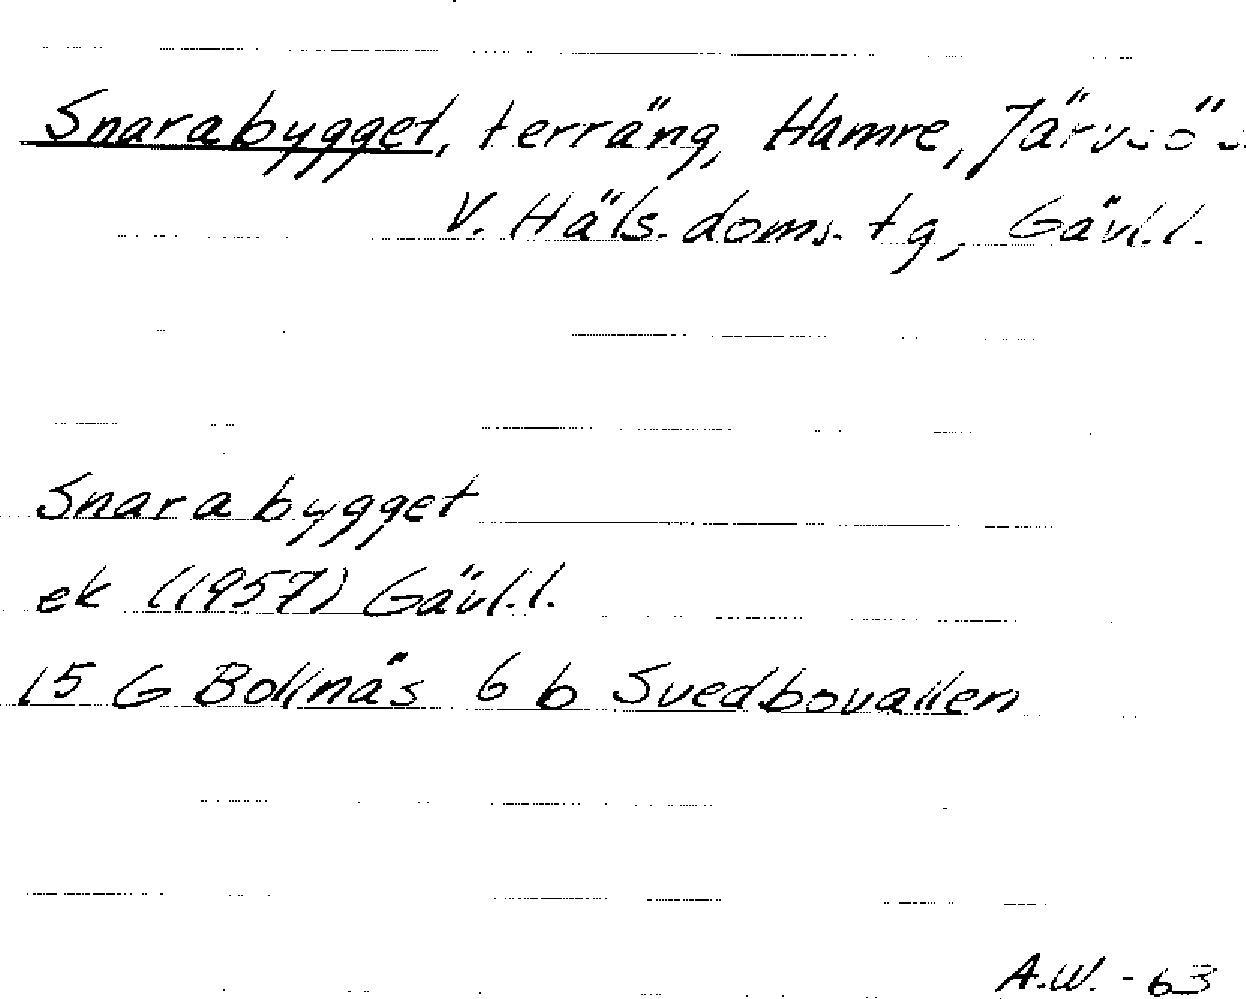 Snarabygget, terräng, Hamre, Järvsö
V. Häls. doms. tg, Gävl.l.
Snarabygget
ek (1957) Gävl.l.
15 G Bollnäs 6 b Svedbovallen
A.W. - 63